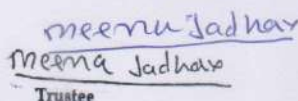 meenu Jadhav
meena Jadhav
Trustee